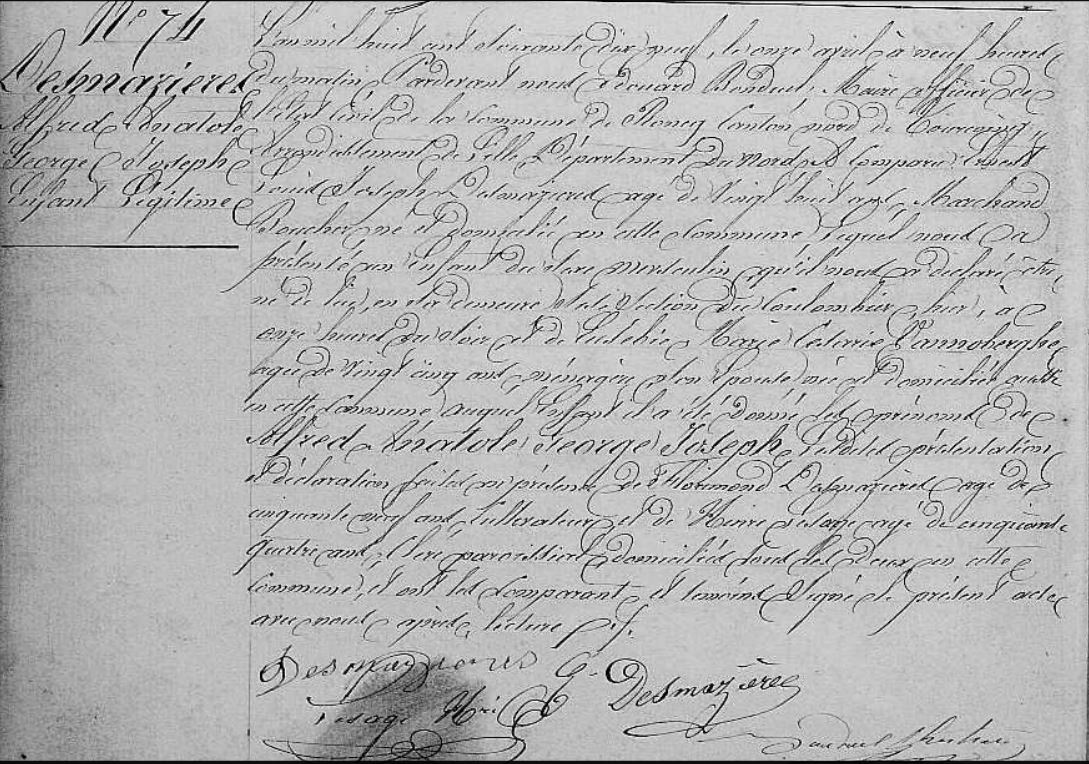 N° 74
Desmazieres
Alfred Anatole
George Joseph
Enfant Légitime
L'an mil huit cent soixante dix neuf, le onze avril à neuf heures
du matin Pardevant nous Edouard Maire officier de
l'état Civil de la Commune de Roncq Canton nord de Tourcoing,
Arrondissement de Lille Département du nord a Comparu Ernest
Louis Joseph Desmazieres agé de vingt huit ans, Marchand
Boucher né et domicilié en cette Commune lequel nous a
présenté un enfant du sexe masculin qu'il nous a déclaré être
né de lui, en sa demeure sise section du Coulombier, hier, à
onze heures du soir et de Marie Vannoberghe
agée de vingt cinq ans ménagère son épouse née et domiciliée
en cette Commune auquel enfant il a été donné les prénoms de
Alfred Anatole George Joseph, lesdites présentation
et déclaration faites en présence de Florimond Desmazières agé de
cinquante neuf ans Cultivateur, et de Henri Lesage agé de cinquante
quatre ans, Clerc paroissial domiciliés tous les deux en cette
Commune, et ont les Comparant et témoins Signé le présent acte
avec nous après lecture
Desmazieres
Desmazières
Lesage Hri